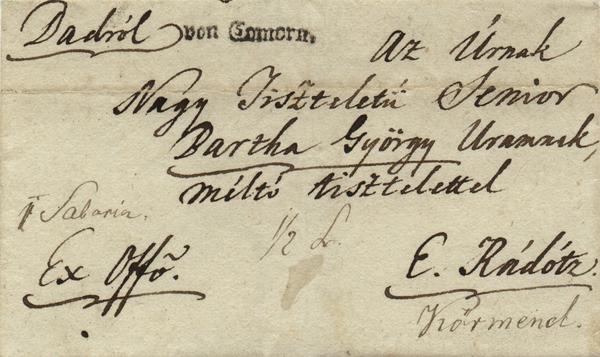 Dadról
von Comorn.
Az Úrnak
Nagy Tiszteletű Senior
Bartha György Uramnak,
méltó tisztelettel
Sabaria.
1/2 L.
Ex Offō.
E. Rádótz.
Körmend.